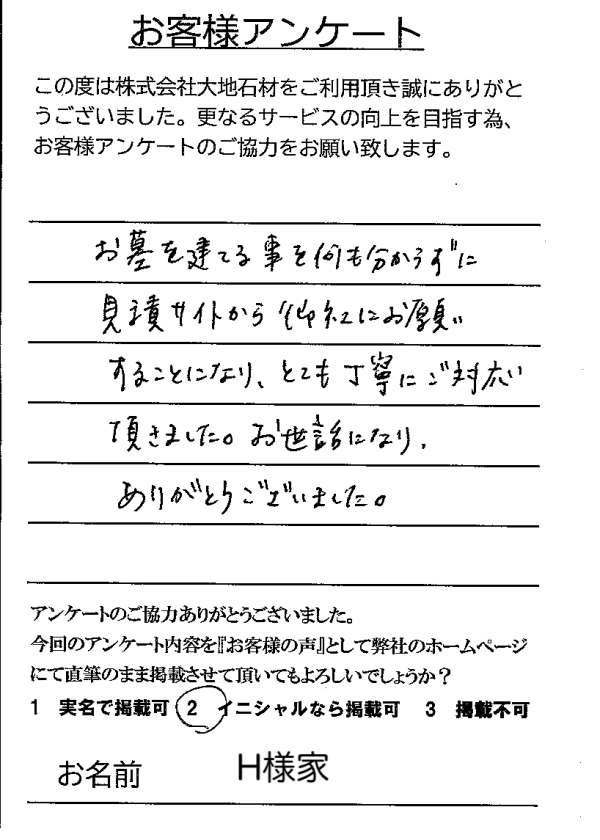 お客様アンケート
この度は株式会社大地石材をご利用頂き誠にありがと
うございました。更なるサービスの向上を目指す為、
お客様アンケートのご協力をお願い致します。
お墓を建てる事を何も分からずに
見積サイトから御社にお願い
することになり、とても丁寧にご対応
頂きました。お世話になり、
ありがとうございました。
アンケートのご協力ありがとうございました。
今回のアンケート内容を『お客様の声』として弊社のホームページ
にて直筆のまま掲載させて頂いてもよろしいでしょうか？
1 実名で掲載可 2 イニシャルなら掲載可 3 掲載不可
お名前 H様家